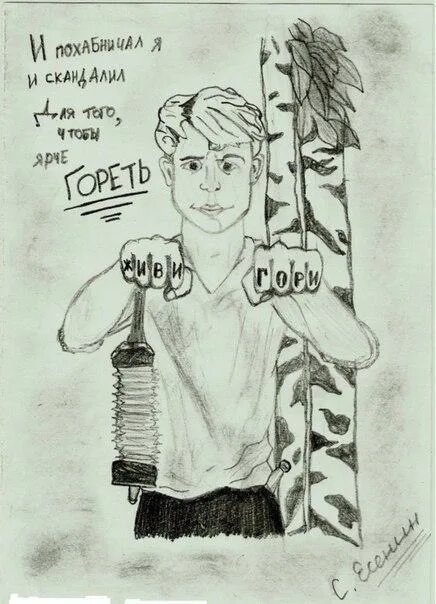 И похабничал я
и скандалил
Для того,
чтобы
ярче
ГОРЕТЬ
ЖИВИ ГОРИ
С. Есенин